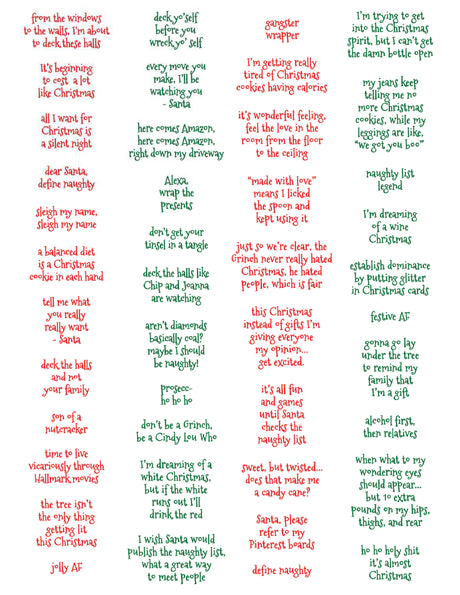 from the windows
to the walls, I'm about
to deck these halls
It's beginning
to cost a lot
like Christmas
all I want for
Christmas is
a silent night
dear Santa,
define naughty
sleigh my name,
sleigh my name
a balanced diet
is a Christmas
cookie in each hand
tell me what
you really
really want
- Santa
deck the halls
and not
your family
son of a
nutcracker
time to live
vicariously through
Hallmark movies
the tree isn't
the only thing
getting lit
this Christmas
jolly AF
deck yo'self
before you
wreck yo' self
every move you
make, I'll be
watching you
- Santa
here comes Amazon,
here comes Amazon,
right down my driveway
Alexa,
wrap the
presents
don't get your
tinsel in a tangle
deck the halls like
Chip and Joanna
are watching
aren't diamonds
basically coal?
maybe I should
be naughty!
prosecc-
ho ho ho
don't be a Grinch,
be a Cindy Lou Who
I'm dreaming of a
white Christmas,
but if the white
runs out I'll
drink the red
I wish Santa would
publish the naughty list,
what a great way
to meet people
gangster
wrapper
I'm getting really
tired of Christmas
cookies having calories
it's wonderful feeling,
feel the love in the
room from the floor
to the ceiling
"made with love"
means I licked
the spoon and
kept using it
just so we're clear, the
Grinch never really hated
Christmas, he hated
people, which is fair
this Christmas
instead of gifts I'm
giving everyone
my opinion...
get excited.
it's all fun
and games
until Santa
checks the
naughty list
sweet, but twisted...
does that make me
a candy cane?
Santa, please
refer to my
Pinterest boards
define naughty
I'm trying to get
into the Christmas
spirit, but i can't get
the damn bottle open
my jeans keep
telling me no
more Christmas
cookies, while my
leggings are like,
"we got you boo"
naughty list
legend
I'm dreaming
of a wine
Christmas
establish dominance
by putting glitter
in Christmas cards
festive AF
gonna go lay
under the tree
to remind my
family that
I'm a gift
alcohol first,
then relatives
when what to my
wondering eyes
should appear...
but 10 extra
pounds on my hips,
thighs, and rear
ho ho holy shit
it's almost
Christmas